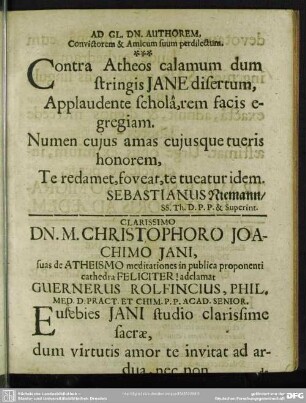 AD GL. DN. AUTHOREM,
Convictorem & Amicum suum perdilectum.
***
Contra Atheos calamum dum
stringis JANE disertum,
Applaudente scholâ, rem facis e-
gregiam.
Numen cujus amas cujusque tueris
honorem,
Te redamet, fovear, te tueatur idem.
SEBASTIANUS Niemann/
SS. Th. D. P. P. & Superint.
CLARISSIMO
DN. M. CHRISTOPHORO JOA-
CHIMO JANI,
suas de ATHEISMO meditationes in publica proponenti
cathedra FELICITER! adclamat
GUERNERUS ROLFINCIUS, PHIL.
MED. D PRACT. ET CHIM. P. P. ACAD. SENIOR.
Eusebies JANI studio clarissime
sacræ,
dum virtutis amor te invitat ad ar-
dua, nec non